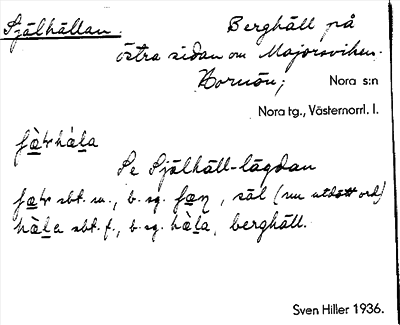 Själhällan. Berghäll på
östra sidan om Majorsviken.
Hornön; Nora s:n
Nora tg., Västernorrl. l.
Se Själhäll-lägdan
sbt. m., b. sg. , säl (nu utdött ord)
sbt. f., b. sg. , berghäll.
Sven Hiller 1936.